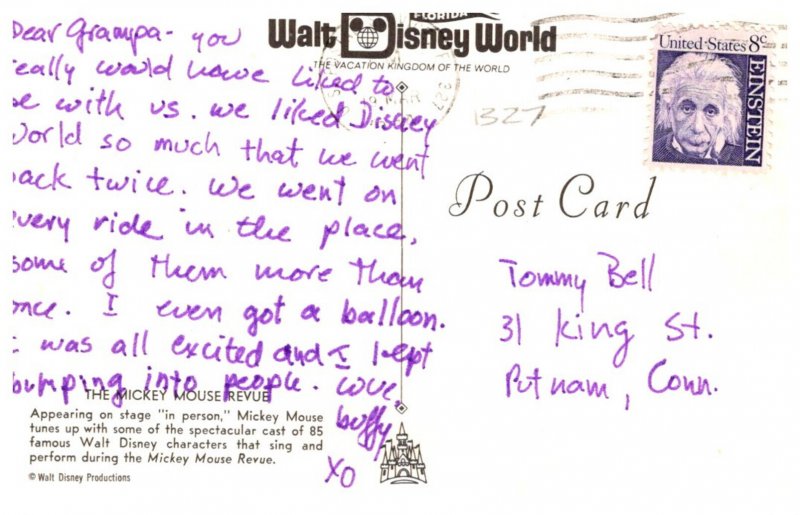 FLORIDA
Walt Disney World
THE VACATION KINGDOM OF THE WORLD
United States 8c
EINSTEIN
1327
Dear Grampa - you
really would have liked to
be with us. we liked Disney
World so much that we went
back twice. We went on
every ride in the place,
some of them more than
once. I even got a balloon.
I was all excited and I kept
bumping into people. Love,
buffy
XO
Post Card
Tommy Bell
31 King St.
Putnam, Conn.
THE MICKEY MOUSE REVUE
Appearing on stage "in person," Mickey Mouse
tunes up with some of the spectacular cast of 85
famous Walt Disney characters that sing and
perform during the Mickey Mouse Revue.
© Walt Disney Productions